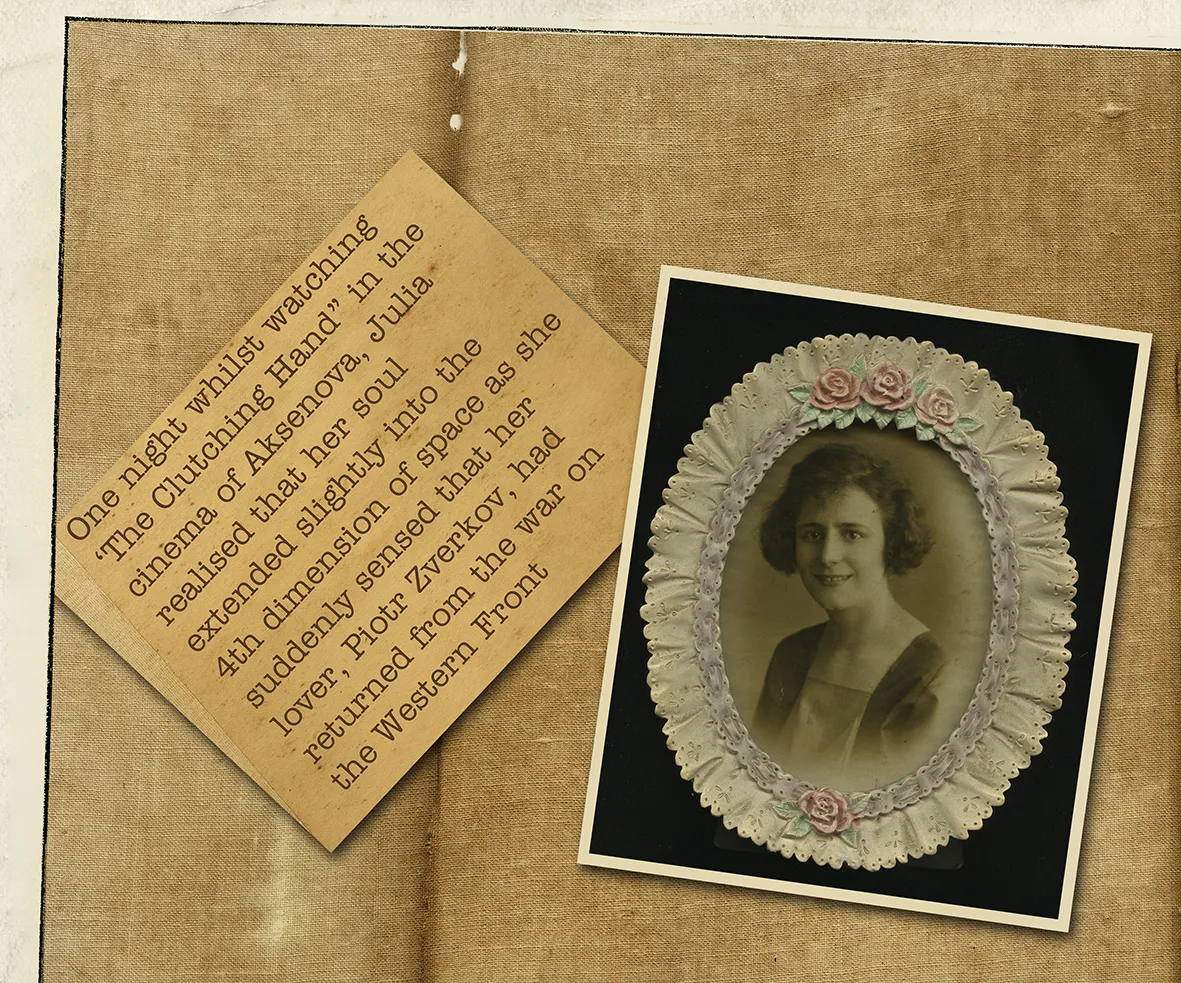 One night whilst watching
‘The Clutching Hand” in the
cinema of Aksenova, Julia
realised that her soul
extended slightly into the
4th dimension of space as she
suddenly sensed that her
lover, Piotr Zverkov, had
returned from the war on
the Western Front